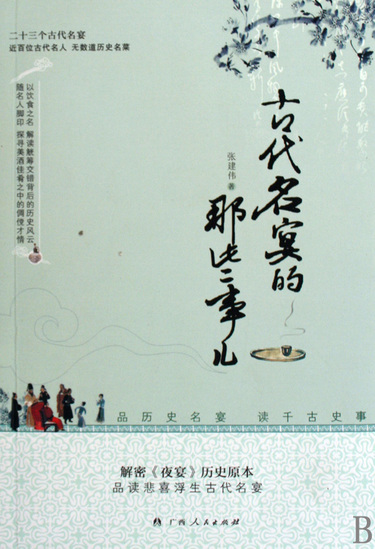 二十三个古代名宴
近百位古代名人 无数道历史名菜
以饮食之名 解读觥筹交错背后的历史风云
随名人脚印 探寻美酒佳肴之中的倜傥才情
古代名宴的
那些事儿
张建伟 著
品历史名宴 读千古史事
解密《夜宴》历史原本
品读悲喜浮生古代名宴
广西人民出版社
B